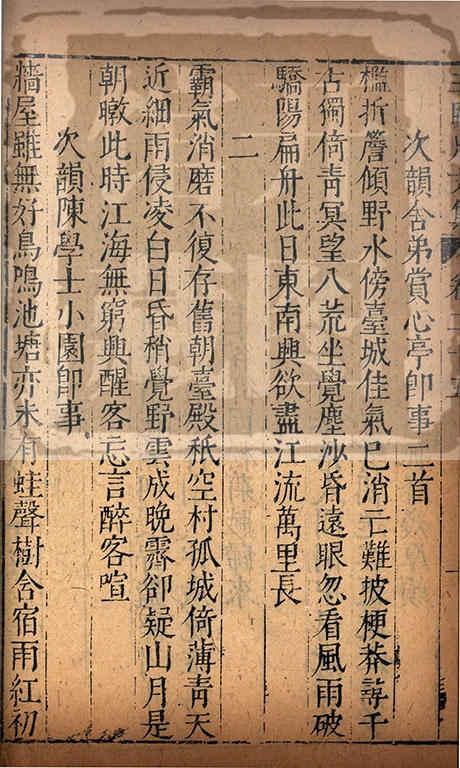 次韻舍弟賞心亭卽事二首
檻折簷傾野水傍臺城佳氣已消亡難披梗莽尋千
古獨倚青冥望八荒坐覺塵沙昏遠眼忽看風雨破
驕陽扁舟此日東南興欲盡江流萬里長
二
霸氣消磨不復存舊朝臺殿秖空村孤城倚薄青天
近細雨侵凌白日昏稍覺野雲成晚霽卻疑山月是
朝暾此時江海無窮興醒客忘言醉客喧
次韻陳學士小園卽事
牆屋雖無好鳥鳴池塘亦未有蛙聲樹含宿雨紅初